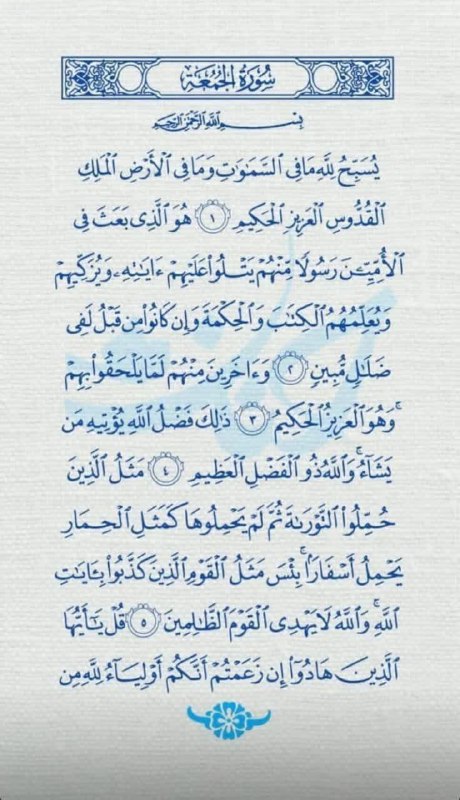 سُورَةُ الجُمُعَةِ
بِسْمِ اللَّهِ الرَّحْمَٰنِ الرَّحِيمِ
يُسَبِّحُ لِلَّهِ مَا فِي السَّمَٰوَٰتِ وَمَا فِي الْأَرْضِ الْمَلِكِ
الْقُدُّوسِ الْعَزِيزِ الْحَكِيمِ ١ هُوَ الَّذِي بَعَثَ فِي
الْأُمِّيِّۦنَ رَسُولًا مِّنْهُمْ يَتْلُوا۟ عَلَيْهِمْ ءَايَٰتِهِۦ وَيُزَكِّيهِمْ
وَيُعَلِّمُهُمُ الْكِتَٰبَ وَالْحِكْمَةَ وَإِن كَانُوا۟ مِن قَبْلُ لَفِي
ضَلَٰلٍ مُّبِينٍ ٢ وَءَاخَرِينَ مِنْهُمْ لَمَّا يَلْحَقُوا۟ بِهِمْ
ۚ وَهُوَ الْعَزِيزُ الْحَكِيمُ ٣ ذَٰلِكَ فَضْلُ اللَّهِ يُؤْتِيهِ مَن
يَشَآءُ ۚ وَاللَّهُ ذُو الْفَضْلِ الْعَظِيمِ ٤ مَثَلُ الَّذِينَ
حُمِّلُوا۟ التَّوْرَىٰةَ ثُمَّ لَمْ يَحْمِلُوهَا كَمَثَلِ الْحِمَارِ
يَحْمِلُ أَسْفَارًۢا ۚ بِئْسَ مَثَلُ الْقَوْمِ الَّذِينَ كَذَّبُوا۟ بِـَٔايَٰتِ
اللَّهِ ۚ وَاللَّهُ لَا يَهْدِي الْقَوْمَ الظَّٰلِمِينَ ٥ قُلْ يَٰٓأَيُّهَا
الَّذِينَ هَادُوٓا۟ إِن زَعَمْتُمْ أَنَّكُمْ أَوْلِيَآءُ لِلَّهِ مِن